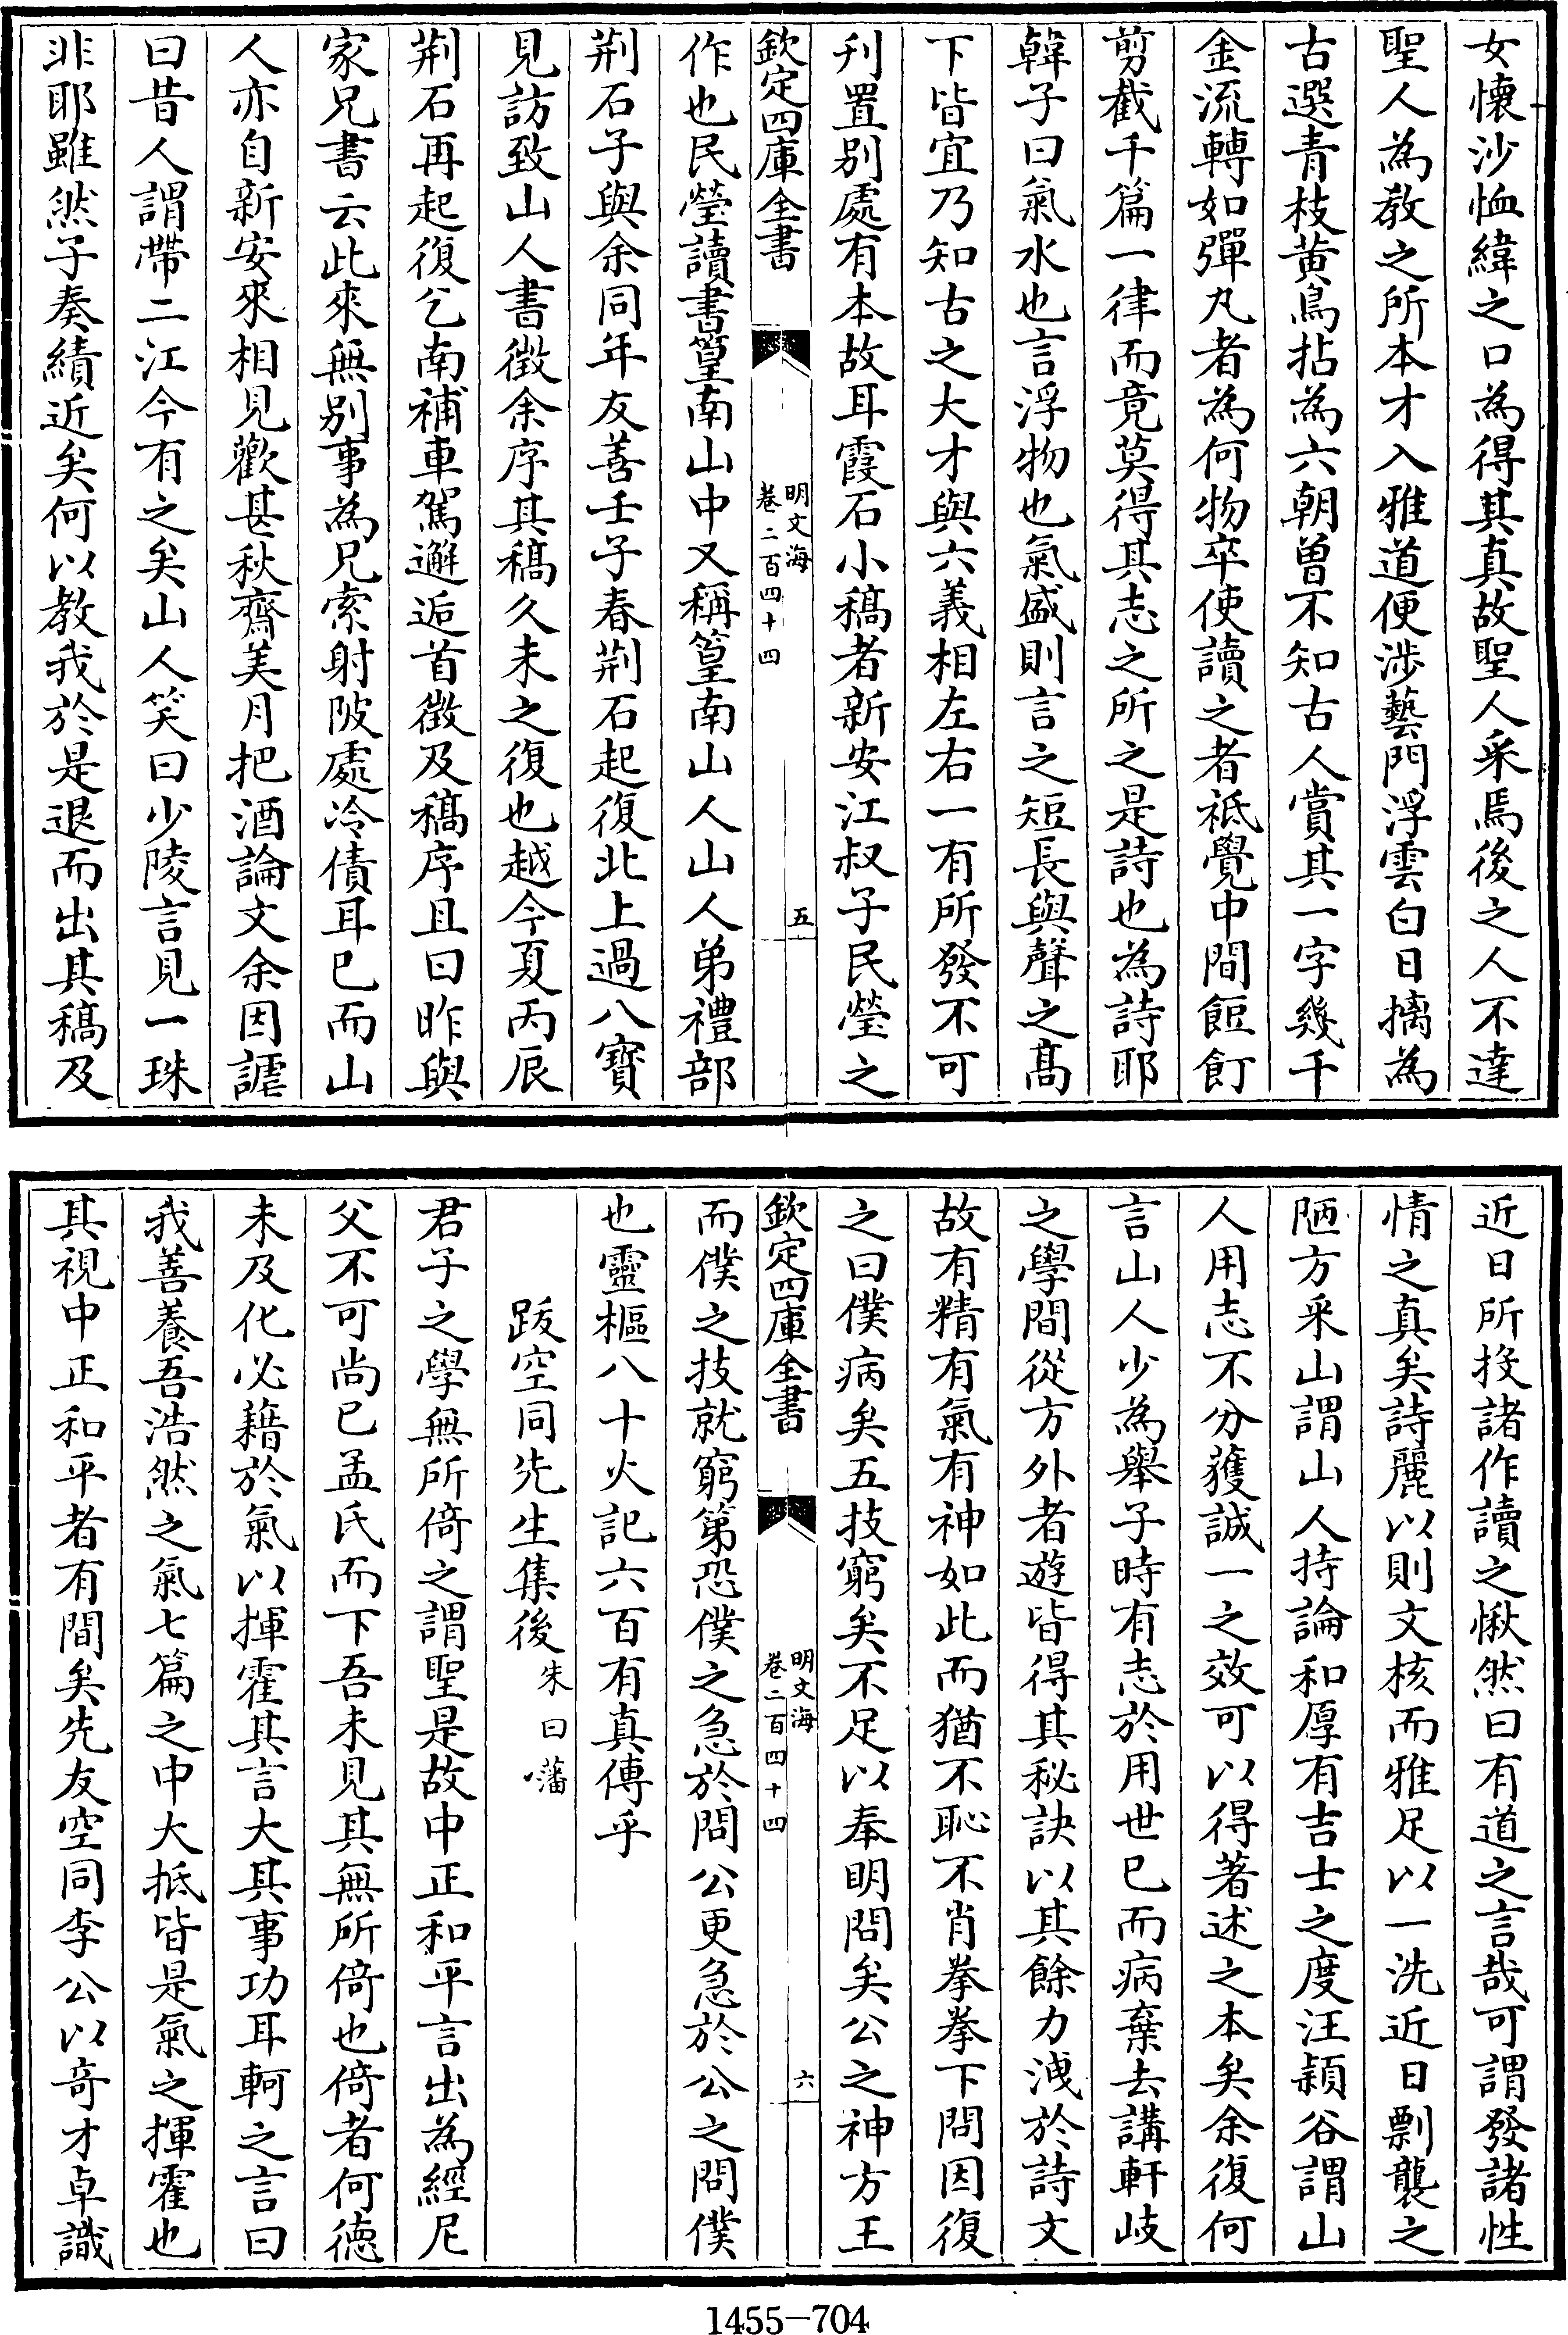 女懷沙恤緯之口為得其真故聖人采焉後之人不達
聖人為教之所本才入雅道便涉藝門浮雲白日摛為
古選青枝黄鳥拈為六朝曾不知古人賞其一字幾千
金流轉如彈丸者為何物卒使讀之者祗覺中間餖飣
剪截千篇一律而竟莫得其志之所之是詩也為詩耶
韓子曰氣水也言浮物也氣盛則言之短長與聲之髙
下皆宜乃知古之大才與六義相左右一有所發不可
刋置别處有本故耳霞石小稿者新安江叔子民瑩之
欽定四庫全書
明文海
卷二百四十四
五
作也民瑩讀書篁南山中又稱篁南山人山人弟禮部
荆石子與余同年友善壬子春荆石起復北上過八寳
見訪致山人書徵余序其稿久未之復也越今夏丙辰
荆石再起復乞南補車駕邂逅首徵及稿序且曰昨與
家兄書云此來無别事為兄索射陂處冷債耳已而山
人亦自新安來相見歡甚秋齋美月把酒論文余因謔
曰昔人謂帶二江今有之矣山人笑曰少陵言見一珠
非耶雖然子奏績近矣何以教我於是退而出其稿及
近日所投諸作讀之愀然曰有道之言哉可謂發諸性
情之真矣詩麗以則文核而雅足以一洗近日剽襲之
陋方采山謂山人持論和厚有吉士之度汪穎谷謂山
人用志不分獲誠一之效可以得著述之本矣余復何
言山人少為舉子時有志於用世已而病棄去講軒岐
之學間從方外者遊皆得其秘訣以其餘力洩於詩文
故有精有氣有神如此而猶不恥不肖拳拳下問因復
之曰僕病矣五技窮矣不足以奉明問矣公之神方王
欽定四庫全書
明文海
卷二百四十四
六
而僕之技就窮第恐僕之急於問公更急於公之問僕
也靈樞八十火記六百有真傳乎
跋空同先生集後 朱曰藩
君子之學無所倚之謂聖是故中正和平言出為經尼
父不可尚已孟氏而下吾未見其無所倚也倚者何徳
未及化必藉於氣以揮霍其言大其事功耳軻之言曰
我善養吾浩然之氣七篇之中大抵皆是氣之揮霍也
其視中正和平者有間矣先友空同李公以竒才卓識
1455—704